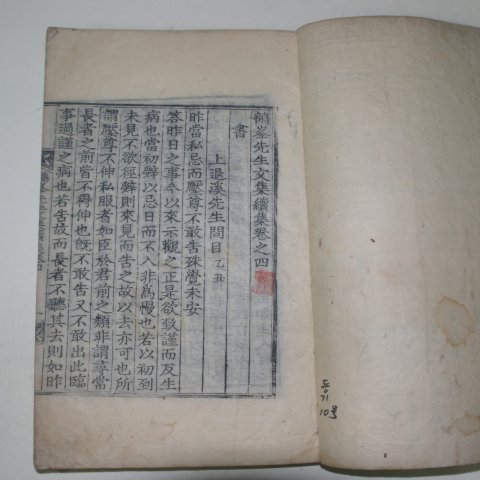 鶴峯先生文集續集卷之四
書
上退溪先生問目 乙丑
昨當私忌而壓尊不敢告殊覺未安
答昨日之事今以來示觀之正是欲致謹而反生
病也當初辭以忌日而不入非爲慢也若以初到
未見不欲徑辭則來見而告之故以去亦可也所
謂壓尊不伸私服者如臣於君前之類非謂尋常
長者之前皆不得伸也旣不敢告又不敢出此臨
事過謹之病也若告故而長者不聽其去則如昨
등기
10号